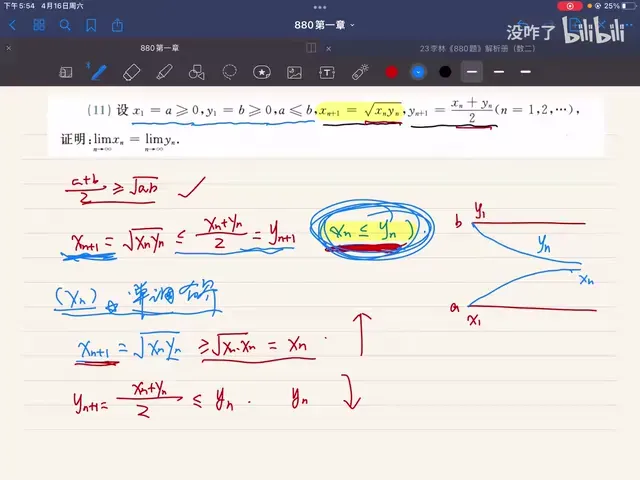 下午5:54 4月16日周六
25%
880第一章
没咋了 bilibili
880第一章
23李林《880题》解析册（数二）
(11) 设 x₁ = a ≥ 0, y₁ = b ≥ 0, a ≤ b, xₙ₊₁ = √(xₙyₙ), yₙ₊₁ = (xₙ + yₙ)/2 (n = 1,2,…),
证明: lim_{n→∞} xₙ = lim_{n→∞} yₙ.
(a+b)/2 ≥ √(ab) ✓
xₙ₊₁ = √(xₙyₙ) ≤ (xₙ+yₙ)/2 = yₙ₊₁ (xₙ ≤ yₙ)
b y₁
yₙ
xₙ
a x₁
(xₙ) 单调有界
xₙ₊₁ = √(xₙyₙ) ≥ √(xₙ·xₙ) = xₙ ↑
yₙ₊₁ = (xₙ+yₙ)/2 ≤ yₙ. yₙ ↓